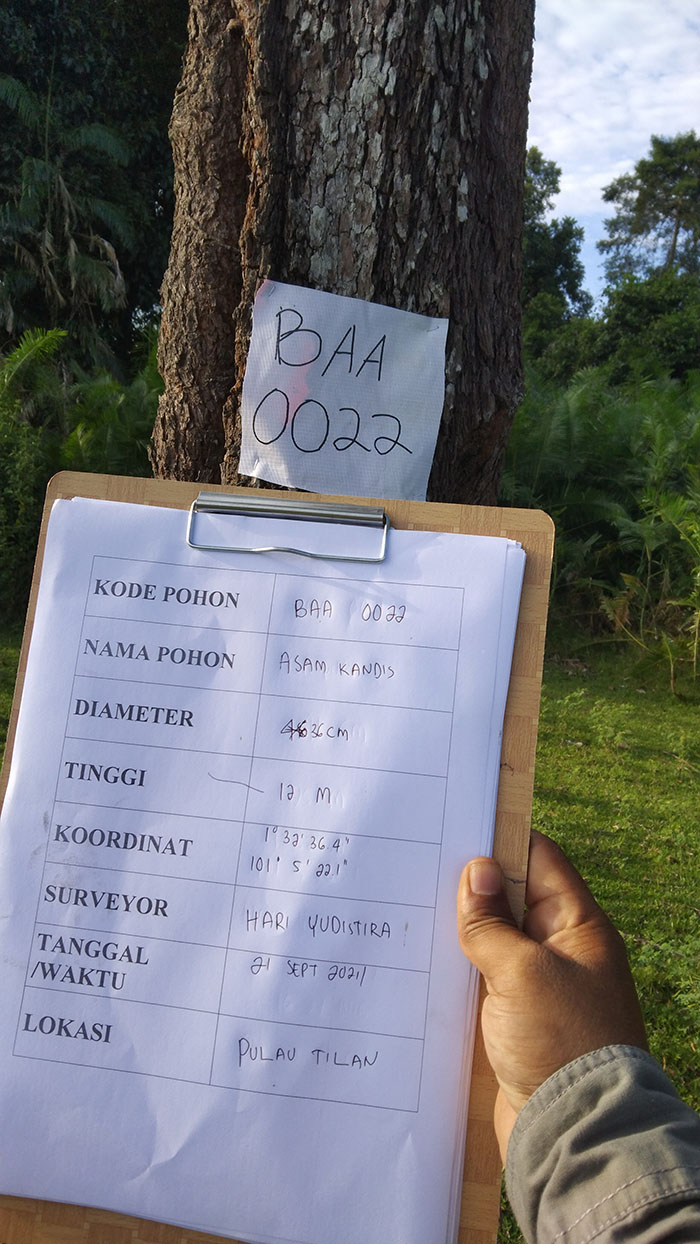 BAA
0022
KODE POHON
BAA 0022
NAMA POHON
ASAM KANDIS
DIAMETER
36 CM
TINGGI
12 M
KOORDINAT
1° 32' 36.4"
101° 5' 22.1"
SURVEYOR
HARI YUDISTIRA
TANGGAL
/WAKTU
21 SEPT 2021/
LOKASI
PULAU TILAN